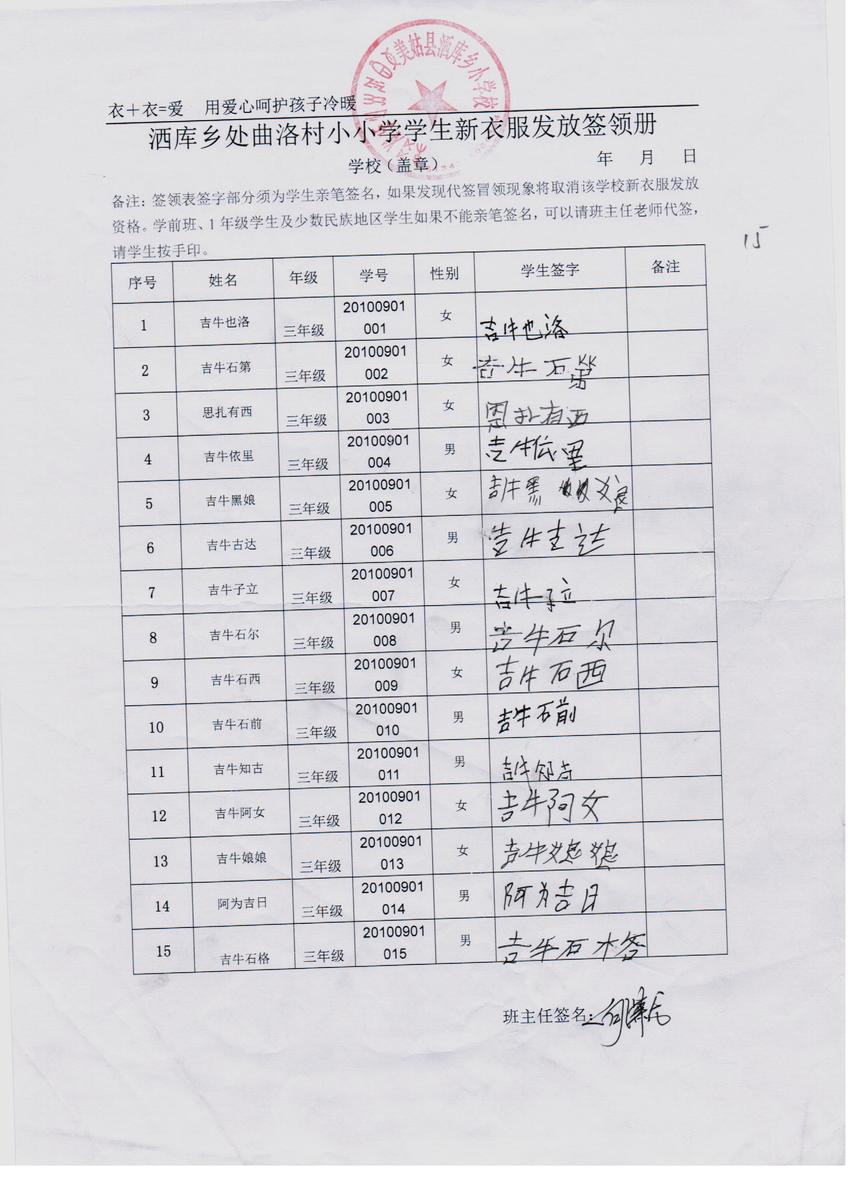 美姑县洒库乡小学校
衣+衣=爱 用爱心呵护孩子冷暖
洒库乡处曲洛村小小学学生新衣服发放签领册
学校(盖章) 年 月 日
备注:签领表签字部分须为学生亲笔签名,如果发现代签冒领现象将取消该学校新衣服发放
资格。学前班、1年级学生及少数民族地区学生如果不能亲笔签名,可以请班主任老师代签,
请学生按手印。
15
序号 姓名 年级 学号 性别 学生签字 备注
1 吉牛也洛 三年级 20100901001 女 吉牛也洛
2 吉牛石第 三年级 20100901002 女 吉牛石第
3 思扎有西 三年级 20100901003 女 恩扎有西
4 吉牛依里 三年级 20100901004 男 吉牛依里
5 吉牛黑娘 三年级 20100901005 女 吉牛黑娘
6 吉牛古达 三年级 20100901006 男 吉牛古达
7 吉牛子立 三年级 20100901007 女 吉牛子立
8 吉牛石尔 三年级 20100901008 男 吉牛石尔
9 吉牛石西 三年级 20100901009 女 吉牛石西
10 吉牛石前 三年级 20100901010 男 吉牛石前
11 吉牛知古 三年级 20100901011 男 吉牛知古
12 吉牛阿女 三年级 20100901012 女 吉牛阿女
13 吉牛娘娘 三年级 20100901013 女 吉牛娘娘
14 阿为吉日 三年级 20100901014 男 阿为吉日
15 吉牛石格 三年级 20100901015 男 吉牛石格
班主任签名: